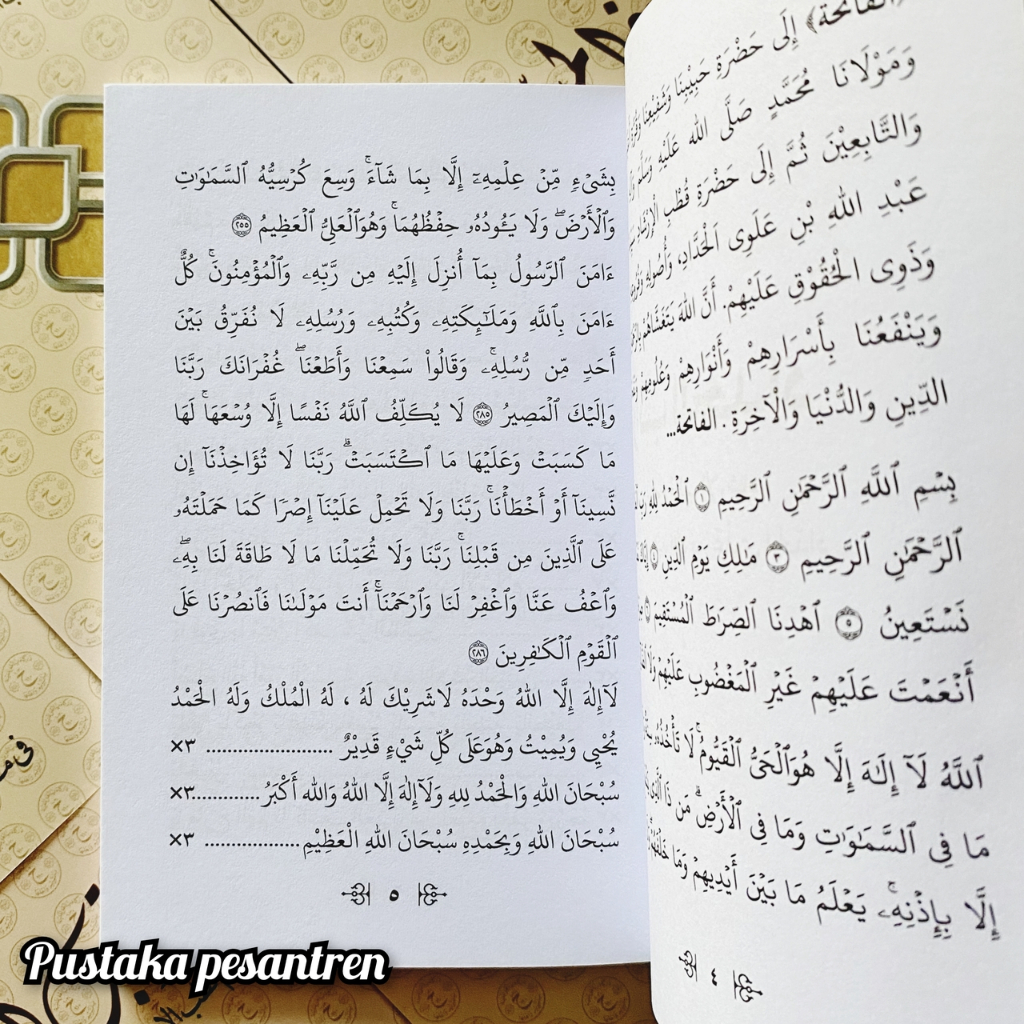 الفاتحة﴾ إِلَى حَضْرَةِ حَبِيْبِنَا وَشَفِيْعِنَا
وَمَوْلَانَا مُحَمَّدٍ صَلَّى الله عَلَيْهِ وَسَلَّمَ
وَالتَّابِعِيْنَ ثُمَّ إِلَى حَضْرَةِ قُطْبِ الْإِرْشَادِ
عَبْدِ اللهِ بْنِ عَلَوِى الْحَدَّادِ، وَأُصُولِهِ
وَذَوِى الْحُقُوْقِ عَلَيْهِمْ. أَنَّ اللهَ يَتَغَشَّاهُمْ
وَيَنْفَعُنَا بِأَسْرَارِهِمْ وَأَنْوَارِهِمْ وَعُلُومِهِمْ
الدِّينِ وَالدُّنْيَا وَالْآخِرَةِ. الفاتحة...
بِسْمِ ٱللَّهِ ٱلرَّحْمَٰنِ ٱلرَّحِيمِ ١ الْحَمْدُ لِلهِ
ٱلرَّحْمَٰنِ ٱلرَّحِيمِ ٣ مَٰلِكِ يَوْمِ ٱلدِّينِ
نَسْتَعِينُ ٥ ٱهْدِنَا ٱلصِّرَٰطَ ٱلْمُسْتَقِيمَ
أَنْعَمْتَ عَلَيْهِمْ غَيْرِ ٱلْمَغْضُوبِ عَلَيْهِمْ
ٱللَّهُ لَآ إِلَٰهَ إِلَّا هُوَ ٱلْحَىُّ ٱلْقَيُّومُ ۚ لَا تَأْخُذُهُۥ
مَا فِى ٱلسَّمَٰوَٰتِ وَمَا فِى ٱلْأَرْضِ ۗ مَن ذَا ٱلَّذِى
إِلَّا بِإِذْنِهِۦ ۚ يَعْلَمُ مَا بَيْنَ أَيْدِيهِمْ وَمَا خَلْفَهُمْ
٤
بِشَىْءٍ مِّنْ عِلْمِهِۦٓ إِلَّا بِمَا شَآءَ ۚ وَسِعَ كُرْسِيُّهُ ٱلسَّمَٰوَٰتِ
وَٱلْأَرْضَ ۖ وَلَا يَـُٔودُهُۥ حِفْظُهُمَا ۚ وَهُوَ ٱلْعَلِىُّ ٱلْعَظِيمُ ٢٥٥
ءَامَنَ ٱلرَّسُولُ بِمَآ أُنزِلَ إِلَيْهِ مِن رَّبِّهِۦ وَٱلْمُؤْمِنُونَ ۚ كُلٌّ
ءَامَنَ بِٱللَّهِ وَمَلَٰٓئِكَتِهِۦ وَكُتُبِهِۦ وَرُسُلِهِۦ لَا نُفَرِّقُ بَيْنَ
أَحَدٍ مِّن رُّسُلِهِۦ ۚ وَقَالُوا۟ سَمِعْنَا وَأَطَعْنَا ۖ غُفْرَانَكَ رَبَّنَا
وَإِلَيْكَ ٱلْمَصِيرُ ٢٨٥ لَا يُكَلِّفُ ٱللَّهُ نَفْسًا إِلَّا وُسْعَهَا ۚ لَهَا
مَا كَسَبَتْ وَعَلَيْهَا مَا ٱكْتَسَبَتْ ۗ رَبَّنَا لَا تُؤَاخِذْنَآ إِن
نَّسِينَآ أَوْ أَخْطَأْنَا ۚ رَبَّنَا وَلَا تَحْمِلْ عَلَيْنَآ إِصْرًا كَمَا حَمَلْتَهُۥ
عَلَى ٱلَّذِينَ مِن قَبْلِنَا ۚ رَبَّنَا وَلَا تُحَمِّلْنَا مَا لَا طَاقَةَ لَنَا بِهِۦ ۖ
وَٱعْفُ عَنَّا وَٱغْفِرْ لَنَا وَٱرْحَمْنَآ ۚ أَنتَ مَوْلَىٰنَا فَٱنصُرْنَا عَلَى
ٱلْقَوْمِ ٱلْكَٰفِرِينَ ٢٨٦
لَآإِلٰهَ إِلَّا اللهُ وَحْدَهُ لَاشَرِيْكَ لَهُ ، لَهُ الْمُلْكُ وَلَهُ الْحَمْدُ
يُحْيِي وَيُمِيْتُ وَهُوَعَلَى كُلِّ شَيْءٍ قَدِيْرٌ ...................... ×٣
سُبْحَانَ اللهِ وَالْحَمْدُ لِلهِ وَلَآإِلٰهَ إِلَّا اللهُ وَالله أَكْبَرُ ............×٣
سُبْحَانَ اللهِ وَبِحَمْدِهِ سُبْحَانَ اللهِ الْعَظِيْمِ .................. ×٣
٥
Pustaka pesantren